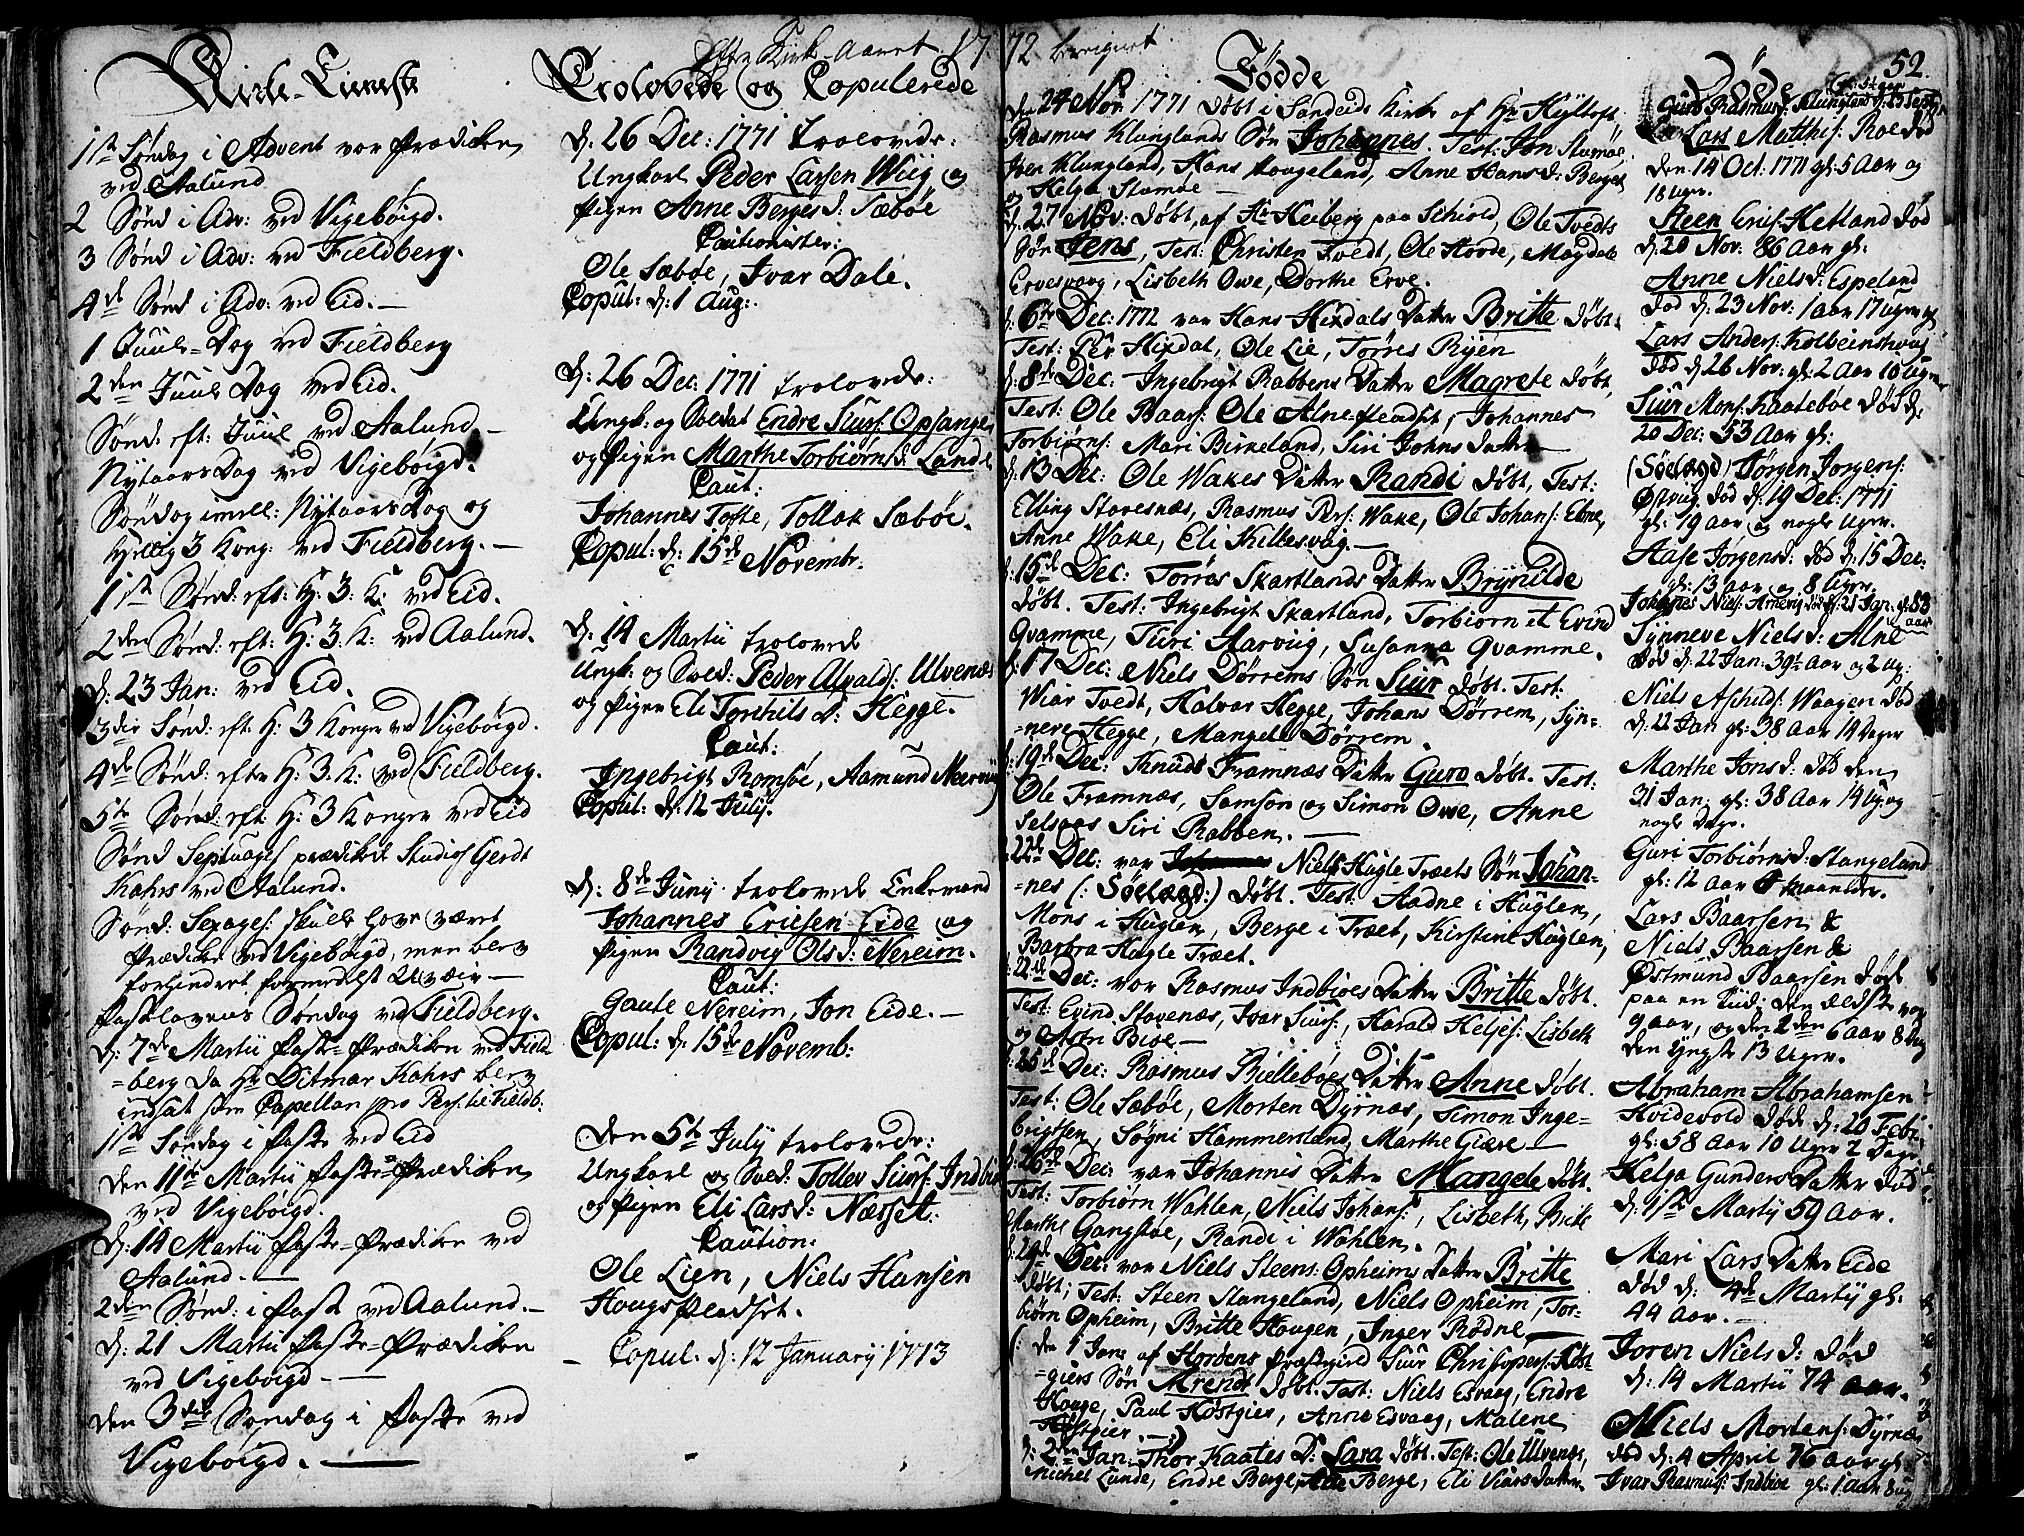 Efter Kirke-Aaret 1772 beregnet
52.
Kirke-Tieneste
1ste Søndag i Advent var Prædiken
ved Aalund
2 Sønd i Adv: ved Vigebøigd.
3 Sønd i Adv: ved Fieldberg.
4de Sønd i Adv: ved Eid.—
1 Juule-Dag ved Fieldberg
2den Juule Dag ved Eid.
Sønd: eft: Juul ved Aalund—
Nytaars Dag ved Vigebøigd.
Søndag imell: Nytaarsdag og
Hellig 3 Kong: ved Fieldberg.—
1ste Sønd: eft: H: 3: K: ved Eid.
2den Sønd: eft: H: 3: K: ved Aalund.
d: 23 Jan: ved Eid.
3die Sønd: eft: H: 3 Konger ved Vigebøigd.
4de Sønd: efter H: 3: K: ved Fieldberg.
5te Sønd: eft: H: 3 Konger ved Eid
Sønd Septuages prædikede Studios Gerdt
Kahrs ved Aalund.
Sønd: Sexages: skulle have været
Prædiken ved Vigebøigd, men blev
forhindret formedelst Uveir—
Fastelavens Søndag ved Fieldberg.
d: 7de Martii Faste-Prædiken ved Field
=berg da Hr Ditmar Kahrs blev
indsat som Capellan pro Pers: til Fieldb:
1ste Søndag i Faste ved Eid
den 11te Martii Faste-Prædiken
ved Vigebøigd.
d: 14 Martii Faste-Prædiken ved
Aalund.—
2den Sønd: i Faste ved Aalund.—
d: 21 Martii Faste-Prædiken
ved Vigebøigd—
den 3die Søndag i Faste ved
Vigebøigd.—
Trolovede og Copulerede
d: 26 Dec: 1771 trolovede:
Ungkarl Peder Larsen Wiig og
Pigen Anne Bergesd: Sæbøe
Cautionister:
Ole Sæbøe, Ivar Dale.
Copul: d: 1 Aug:
d: 26 Dec: 1771 trolovede:
Ungk: og Soldat Endre Siurs: Opsanger
og Pigen Marthe Torbiørnsd: Lande
Caut:
Johannes Tofte, Tollak Sæbøe.
Copul: d: 15de Novembr:
d: 14 Martii trolovede
Ungk: og Sold: Peder Alvalds: Ulvenæs
og Pigen Eli Torchils D: Hegge.
Caut:
Ingebrigt Romsøe, Aamund Neervig
Copul: d: 12 July.
d: 8de Juny trolovede Enkemand
Johannes Ericsen Eide og
Pigen Randvig Ols d: Nereim.
Caut:
Gaute Nereim, Jon Eide.—
Copul: d: 15de Novemb:
den 5te July trolovede:
Ungkarl og Sold: Tollev Siurs: Indbiø
og Pigen Eli Larsd: Næsset:
Caution:
Ole Lien, Niels Hansen
Hougs Pladset.
Copul. d: 12 January 1773
Fødde
den 24 Nov: 1771 døbt i Søndeids Kirke af Hr Hyltoft
Rasmus Klunglands Søn Johannes. Test: Jon Stumøe
Iver Klungland, Hans Hougeland, Anne Hans d: Berget
og Helga Stumøe—
d: 27 Nov: døbt, af Hr Heiberg paa Schiold, Ole Tvedts
Søn Jens, Test: Christen Tvedt, Ole Hovde, Magdele
Ervesvaag, Lisbeth Owe, Dorthe Erve.
d: 6te Dec: 1772 var Hans Hixdals Datter Britte døbt.
Test: Per Hixdal, Ole Lie, Torres Ryen
d: 8de Dec: Ingebrigt Rabbens Datter Magrete døbt,
Test: Ole Baars: Ole Alne, Johannes
Torbiørns: Mari Birkeland, Siri Johns Datter—
d: 13 Dec: Ole Wakes Datter Randi døbt, Test:
Elling Stavesnæs, Rasmus Pers: Wake, Ole Johans: Ebne,
Anne Wake, Eli Killesvaag.—
d: 15de Dec: Torres Skartlands Datter Brynilde
døbt. Test: Ingebrigt Skartland, Torbiørn et Evind
Qvamme, Turi Aarvig, Susanna Qvamme.
d: 17 Dec: Niels Dørrems Søn Siur døbt. Test:
Wiar Tvedt, Halvar Hegge, Johans Dørrem, Syn-
=neve Hegge, Mangele Dørrem.
d: 19de Dec: Knuds Framnæs Datter Guro døbt. Test:
Ole Framnæs, Samson og Simon Owe, Anne
Selsaas Siri Rabben.—
22de Dec: var Niels Hugle Træets Søn Johan-
=nes (: Søelægd:) døbt. Test: Aadne i Huglen,
Mons i Huglen, Berge i Træet, Kirstine Huglen,
Barbra Hugle Træet.
22de Dec: var Rasmus Indbiøes Datter Britte døbt.
Test: Evind Stavenæs, Ivar Siurs:, Harald Heljes: Lisbeth
og Astri Biøe—
25de Dec: Rasmus Biellebøes Datter Anne døbt.
Test: Ole Sæbøe, Morten Dyrnæs, Simon Inge-
brigtsen, Søgni Hammersland, Marthe Giære—
26de Dec: var Johannis Datter Mangele døbt.
Test: Torbiørn Wahlen, Niels Johans:, Lisbeth, Brite
Marthe Gangstøe, Randi i Wahlen.
29de Dec: var Niels Steens: Opheims Datter Britte
døbt; Test: Steen Stangeland, Niels Opheim, Tor-
biørn Opheim, Britte Hougen, Inger Rødne—
(: den 1 Jan: af Præstegield Siur Christopers: Høst-
=giers Søn Arendt døbt. Test: Niels Esvaag, Endre
Houge, Paul Høstgier, Anna Esvaag, Malene
Høstgier.—:)
d: 2den Jan: Thor Kaates D: Sara døbt. Test: Ole Ulvenæs,
Michel Lunde, Endre Berge, Berge, Eli Viars Datter
Døde
Guro Rasmusd: Klungland d: 23 Sept:
Lars Matthis: Roe død
den 14 Oct: 1771 gl: 5 Aar og
18 Uger.
Steen Erics: Hetland død
d: 20 Nov: 86 Aar gl:
Anne Niels d: Espeland
død d: 23 Nov: 1 Aar 17 Uger gl
Lars Anders: Kolbeinshvag
død d: 26 Nov: gl: 2 Aar 10 Uger
Siur Mons: Kaatebøe død d:
20 Dec: 53 Aar gl:
(Søelægd) Jørgen Jorgens:
Østvig død d: 19 Dec: 1771
gl: 19 aar og nogle Uger.
Aase Jørgensd: død d: 15 Dec:
gl: 13 aar og 8 Uger
Johannes Niels: Arnevig død d: 21 Jan: gl: 58
aar
Synneve Niels d: Alne
død d: 22 Jan: 39 Aar og 2 Ug:
Niels Aschilds: Waagen død
d: 22 Jan gl: 38 Aar 14 Dager
Marthe Jons d: død den
31 Jan: gl: 38 Aar 14 Ug og
nogle Dage.
Guri Torbiørns d: Stangeland
gl: 12 Aar maaneder.
Lars Baarsen &
Niels Baarsen &
Østmund Baarsen døde
paa en Tiid: den ældste var
9 aar, og den 2den 6 aar 8 Ug
den Yngste 13 Uger.
Abraham Abrahamsen
Hvidevold døde d: 20 Febr:
gl: 58 Aar 10 Uger 2 Dage
Helga Gunders Datter død
d: 1ste Martij 59 Aar.
Mari Lars Datter Eide
død d: 4de Martij gl:
44 Aar.—
Joren Niels d: død
d: 14 Martii 74 aar.
Niels Mortens: Dyrnæs
død d: 4 April 76 aar gl:
Ivar Rasmus: Indbiøe gl: 1 aar 8 ug